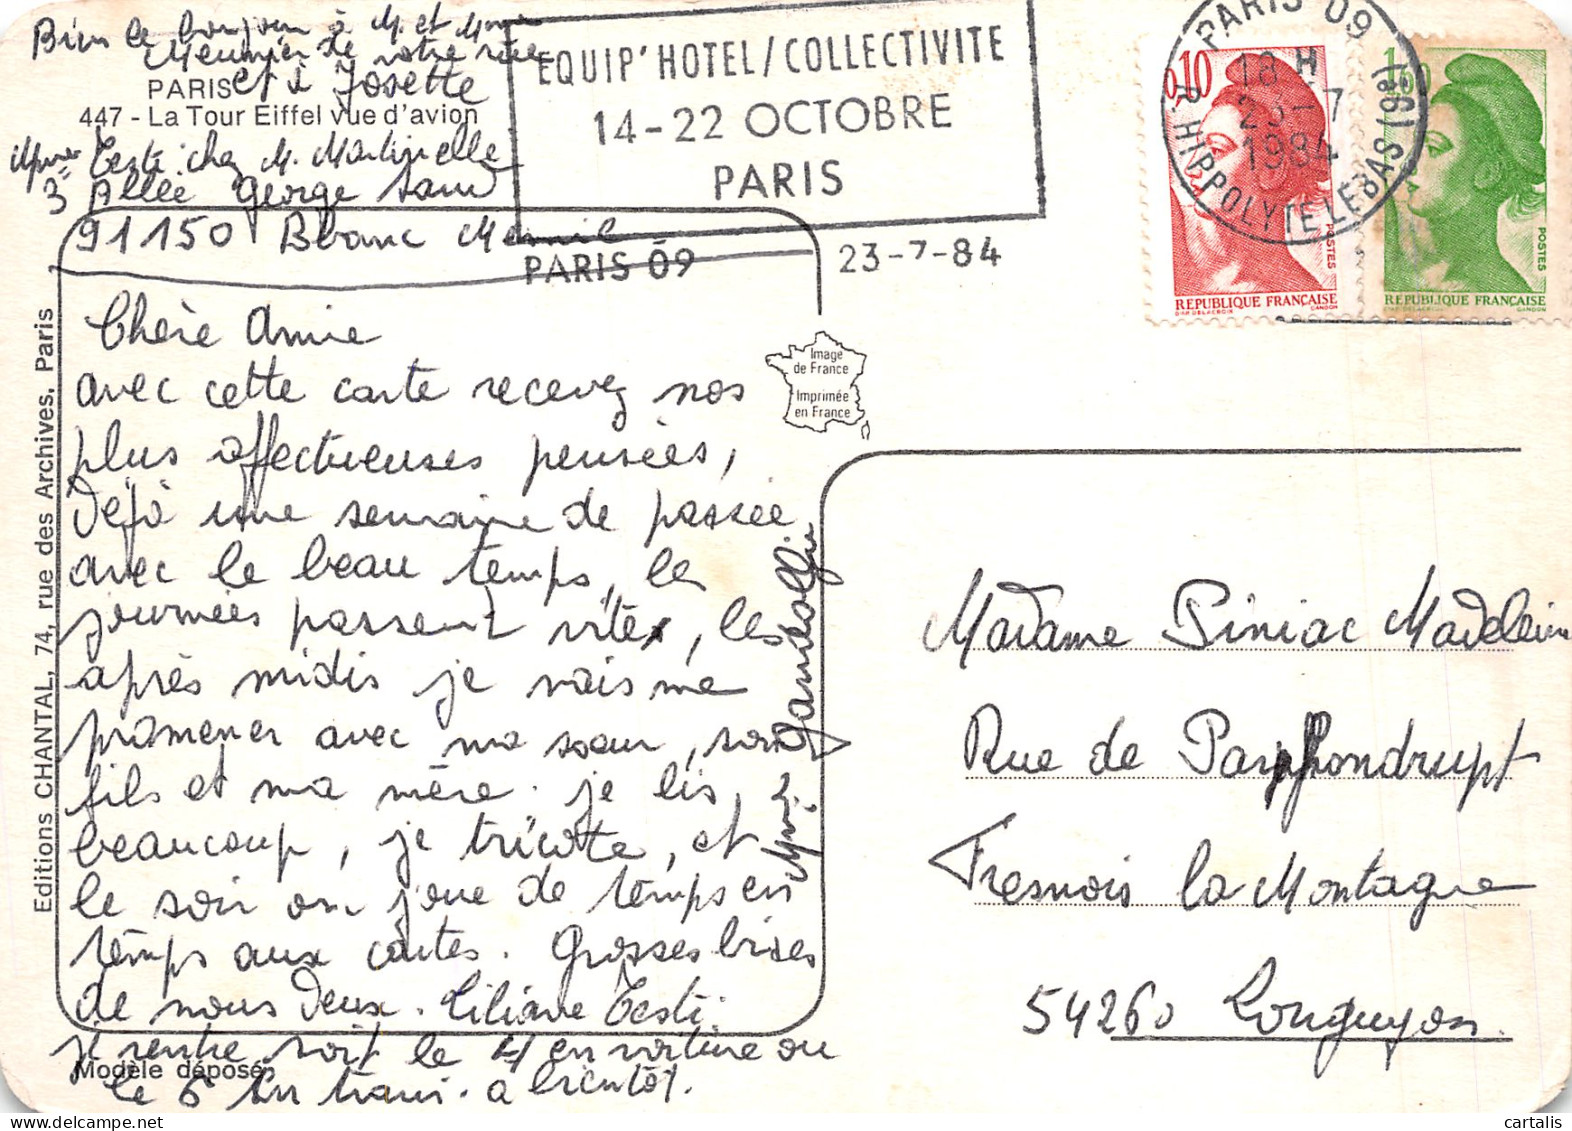 Bien le bonjour à M. et Mme
Meunier de votre rue
et à Josette
PARIS
447 - La Tour Eiffel vue d'avion
Testi chez M. Martinelle
3 Allée George Sand
91150 Blanc Mesnil
EQUIP' HOTEL/COLLECTIVITE
14-22 OCTOBRE
PARIS
PARIS 09
23-7-84
PARIS 09
18 H
23-7
1984
R. HIPPOLYTE LEBAS (9e)
0,10
POSTES
REPUBLIQUE FRANÇAISE
D'AP. DELACROIX GANDON
1,60
POSTES
REPUBLIQUE FRANÇAISE
D'AP. DELACROIX GANDON
Image
de France
Imprimée
en France
Editions CHANTAL, 74, rue des Archives. Paris
Chère Amie
avec cette carte recevez nos
plus affectueuses pensées,
Déjà une semaine de passée
avec le beau temps, les
journées passent vite, les
après midis je vais me
promener avec ma sœur, son
fils et ma mère. je lis,
beaucoup, je tricote, et
le soir on joue de temps en
temps aux cartes. Grosses bises
de nous deux. Liliane Testi.
je rentre soit le 4 en voiture ou
le 5 en train. a bientôt.
Modèle déposé
Madame Piniac Madeleine
Rue de Parphondrupt
Fresnois la Montagne
54260 Longuyon.
cartalis
www.delcampe.net